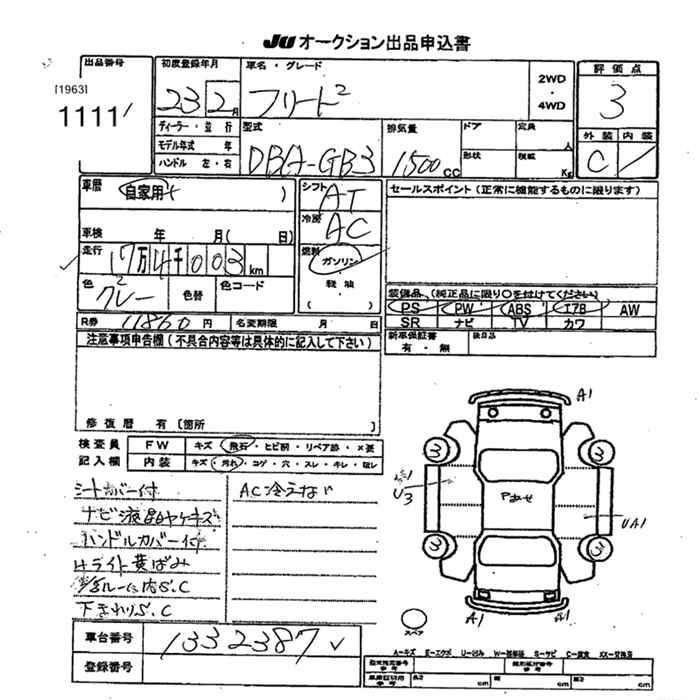 JU オークション出品申込書
出品番号
[1963]
1111
初度登録年月
23 2月
車名・グレード
フリード
2WD
・
4WD
評価点
3
外装 内装
C
ディーラー・並行
モデル年式 年
ハンドル 左・右
型式
DBA-GB3
排気量
1500 CC
ドア
形状
定員 人
積載 Kg
車歴 自家用 )
車検 年 月( 日)
走行 17万4千003 km
色 グレー 色替 色コード
シフト AT
冷房 AC
燃料 ガソリン
軽油
( )
セールスポイント (正常に機能するものに限ります)
装備品 (純正品に限り○を付けてください)
PS PW ABS エアB AW
SR ナビ TV カワ
新車保証書 有・無
後日品
R券 11860円 名変期限 月 日
注意事項申告欄(不具合内容等は具体的に記入して下さい)
修復暦 有 〔箇所 〕
検査員 記入欄
FW キズ・飛石・ヒビ割・リペア跡・×要
内装 キズ・汚れ・コゲ・穴・スレ・キレ・
シートカバー付
ナビ液晶ヤケキズ
ハンドルカバー付
Hライト黄ばみ
ルーム内S.C
下きわりS.C
AC冷えない
A1
U3
Pあせ
UA1
A1
A1
スペア
A=キズ E=エクボ U=凹み W=補修跡 S=サビ C=腐食 XX=交換済
車台番号 1332387
登録番号
cm cm cm